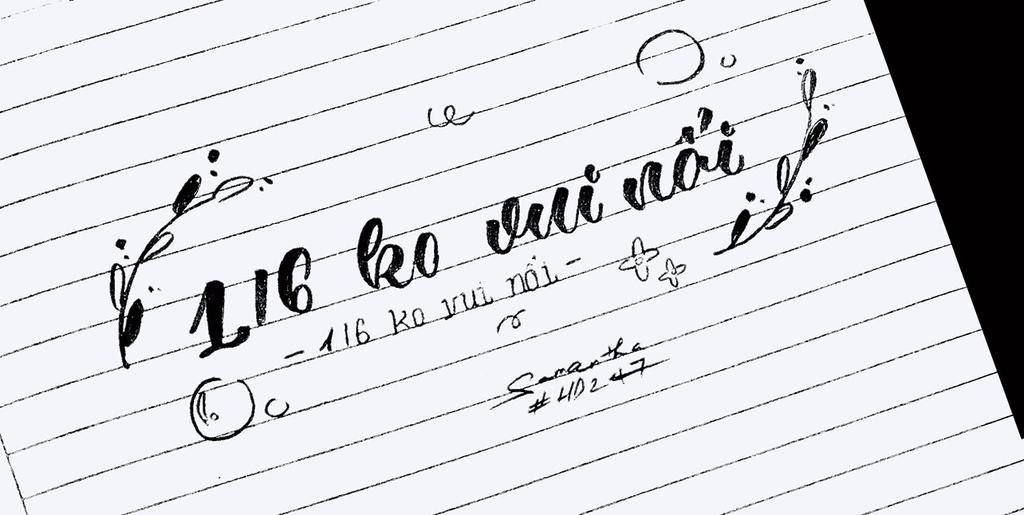 1/6 ko vui nổi
- 1/6 ko vui nổi -
Samantha
#4D247